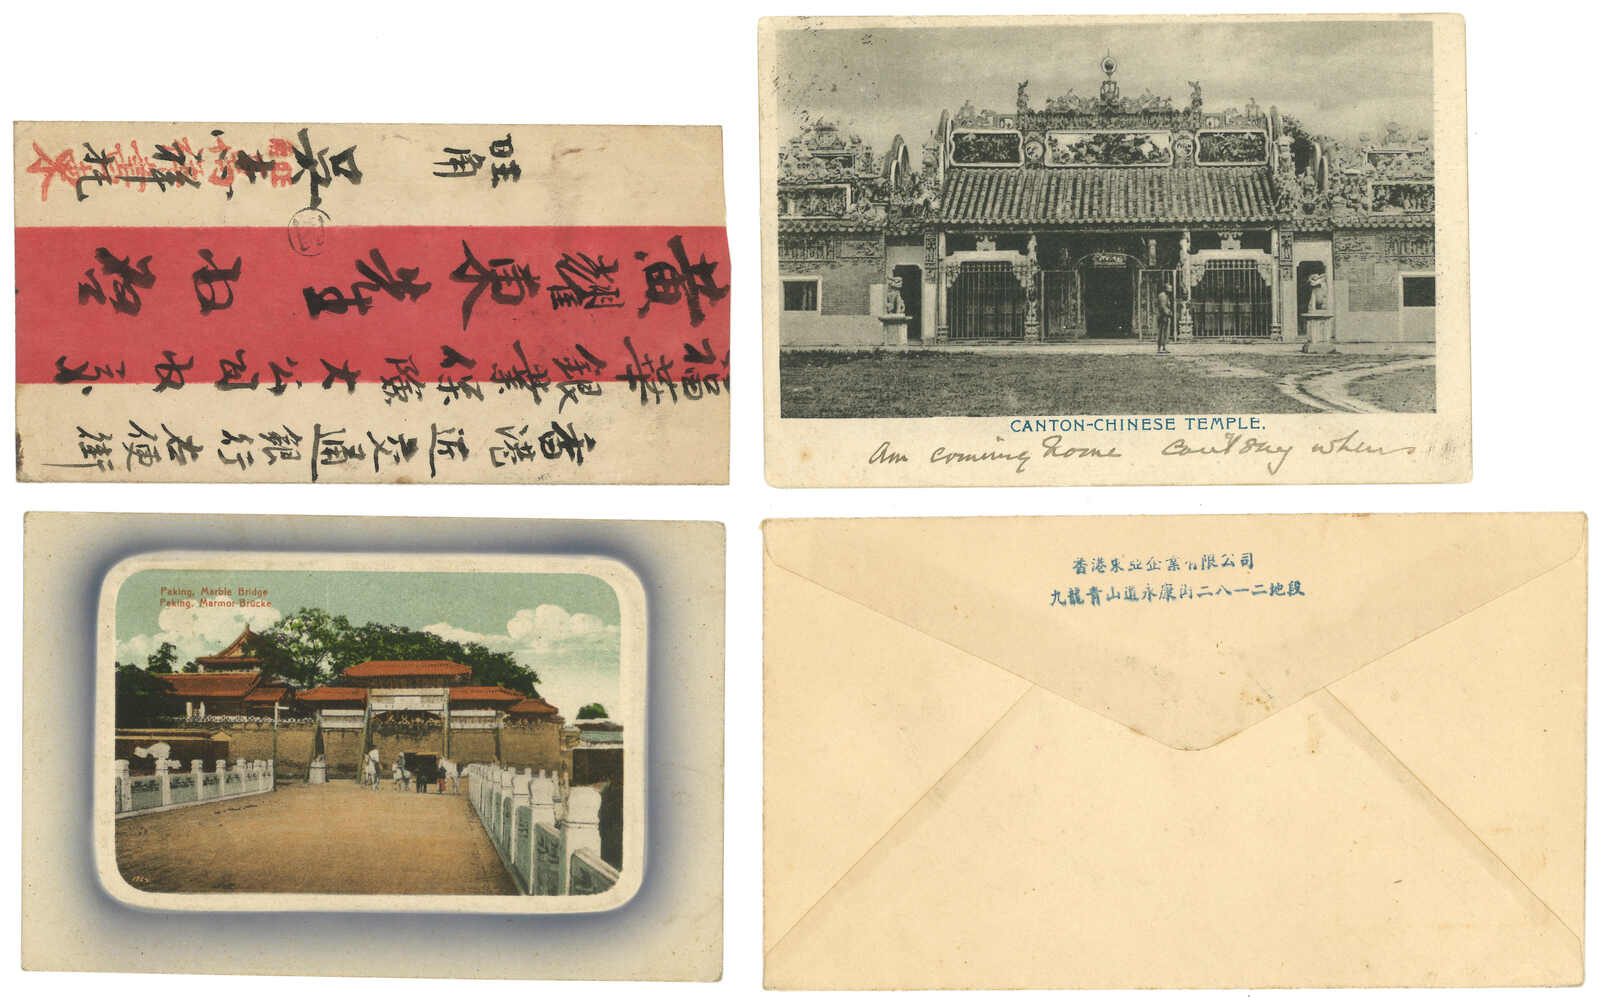 香港近交通銀行左便街
福華銀業保險大公司
黃耀東先生
旺角
CANTON-CHINESE TEMPLE.
Am coming home Can't say when
Peking, Marble Bridge
Peking. Marmor-Brücke
香港東亞企業有限公司
九龍青山道永康街二八一二地段